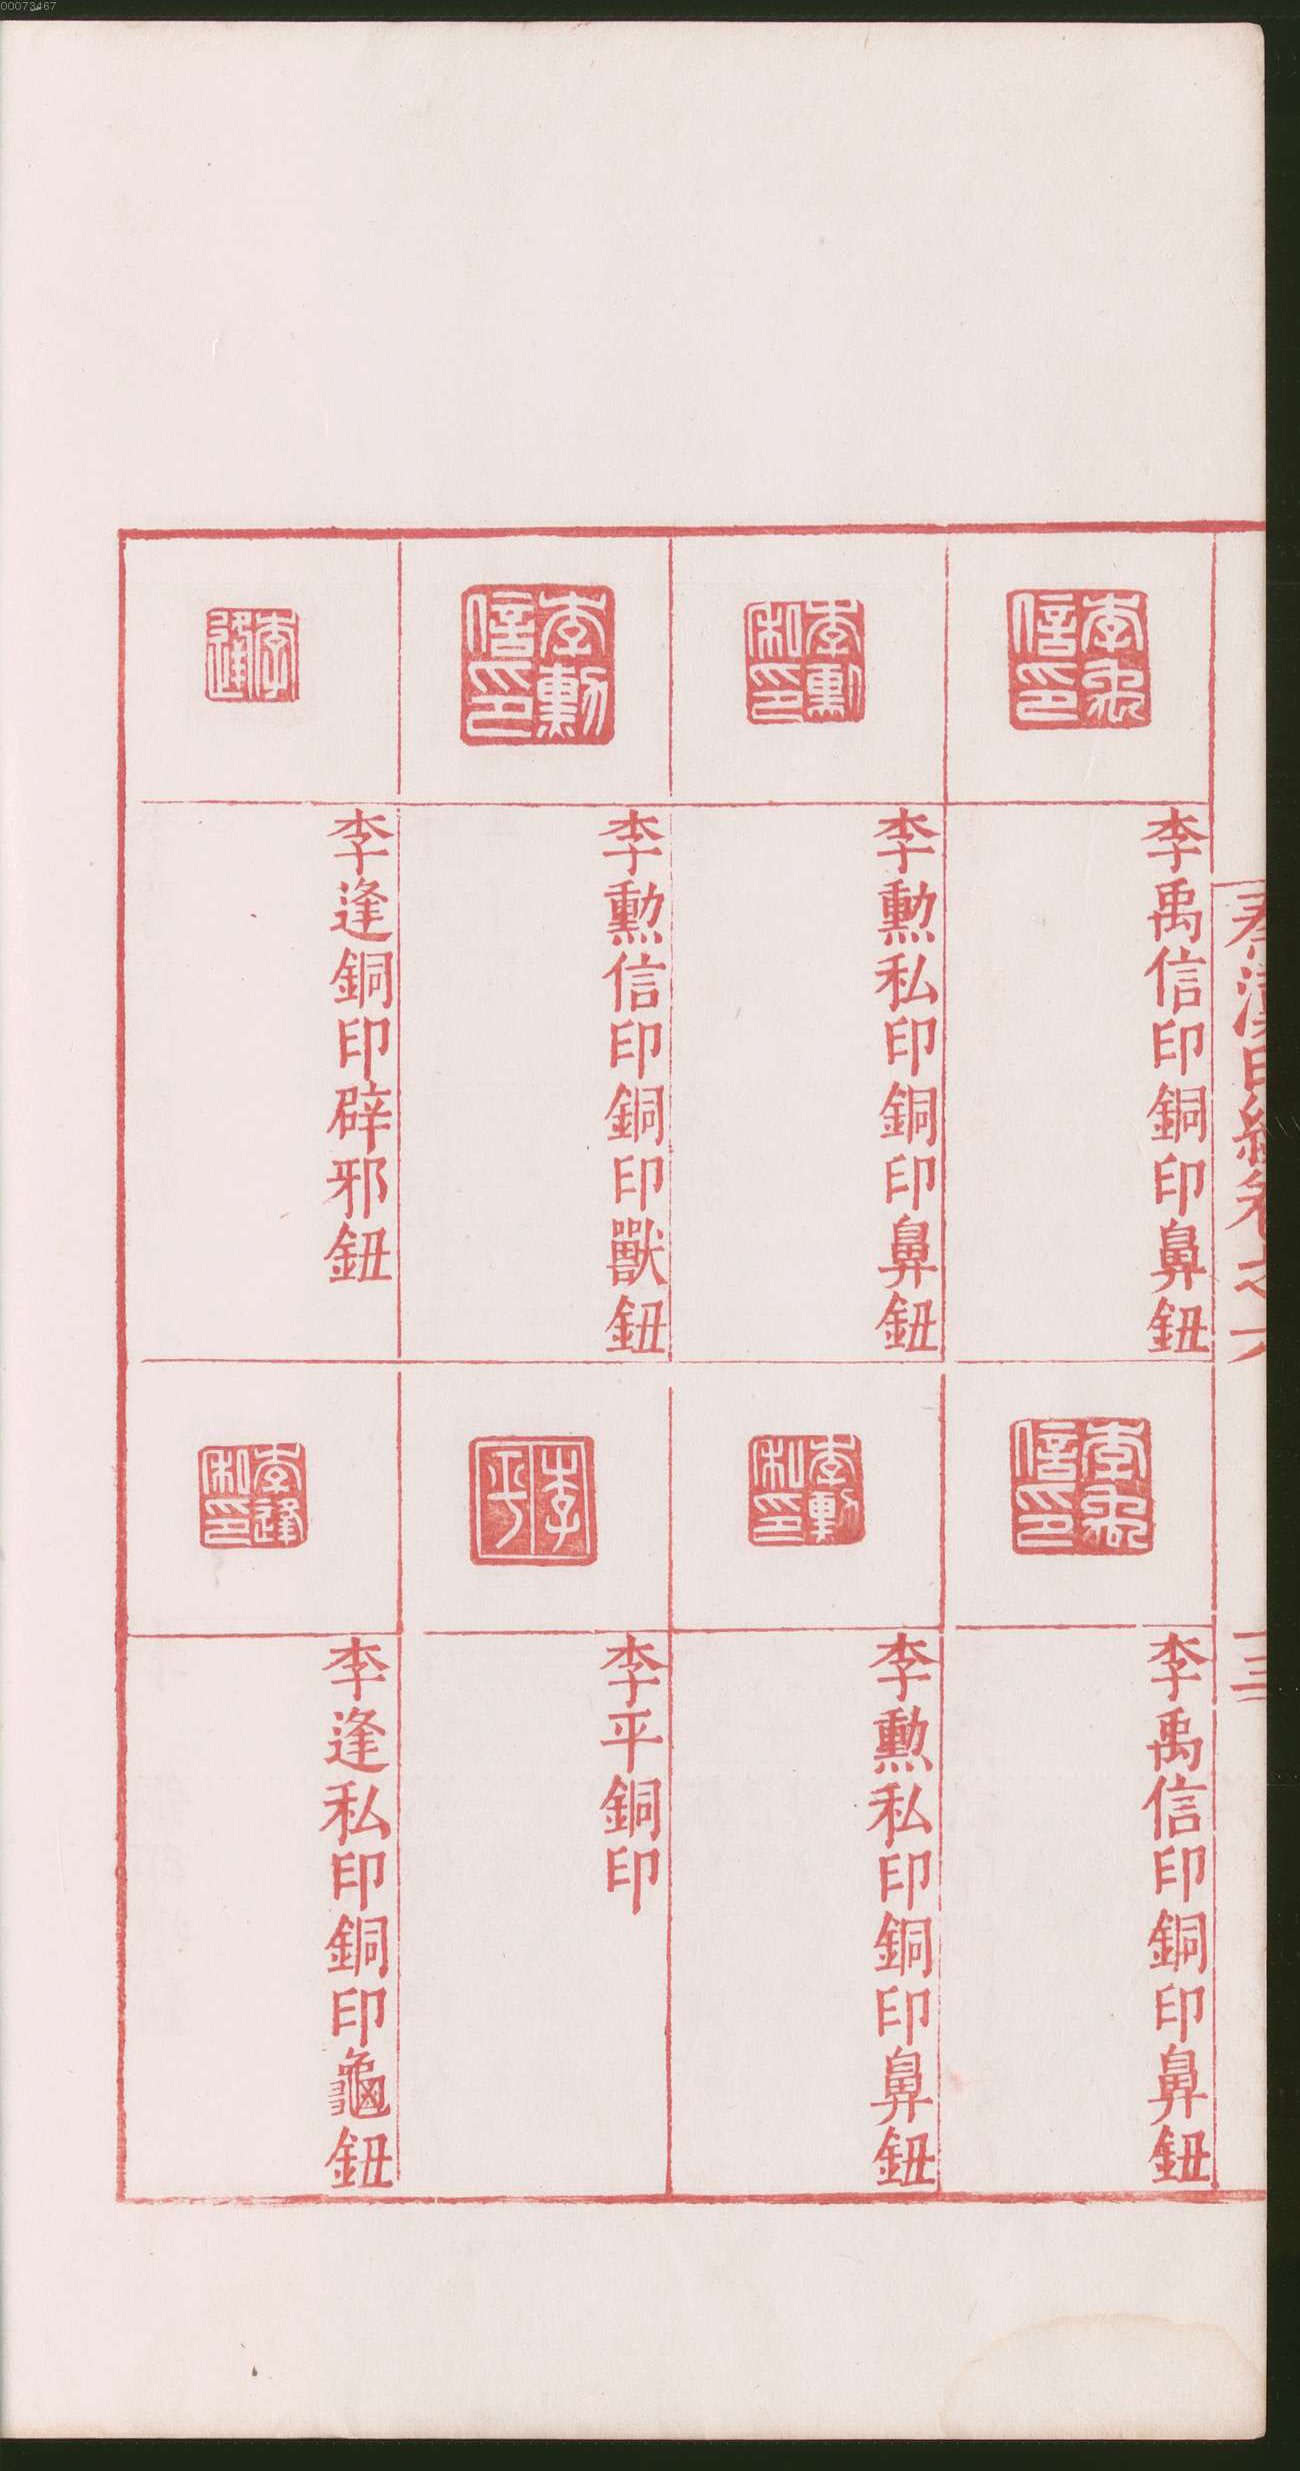 00073467
秦漢印統卷之六
三
李禹信印
李禹信印銅印鼻鈕
李勳私印
李勳私印銅印鼻鈕
李勳信印
李勳信印銅印獸鈕
李逢
李逢銅印辟邪鈕
李禹信印
李禹信印銅印鼻鈕
李勳私印
李勳私印銅印鼻鈕
李平
李平銅印
李逢私印
李逢私印銅印龜鈕